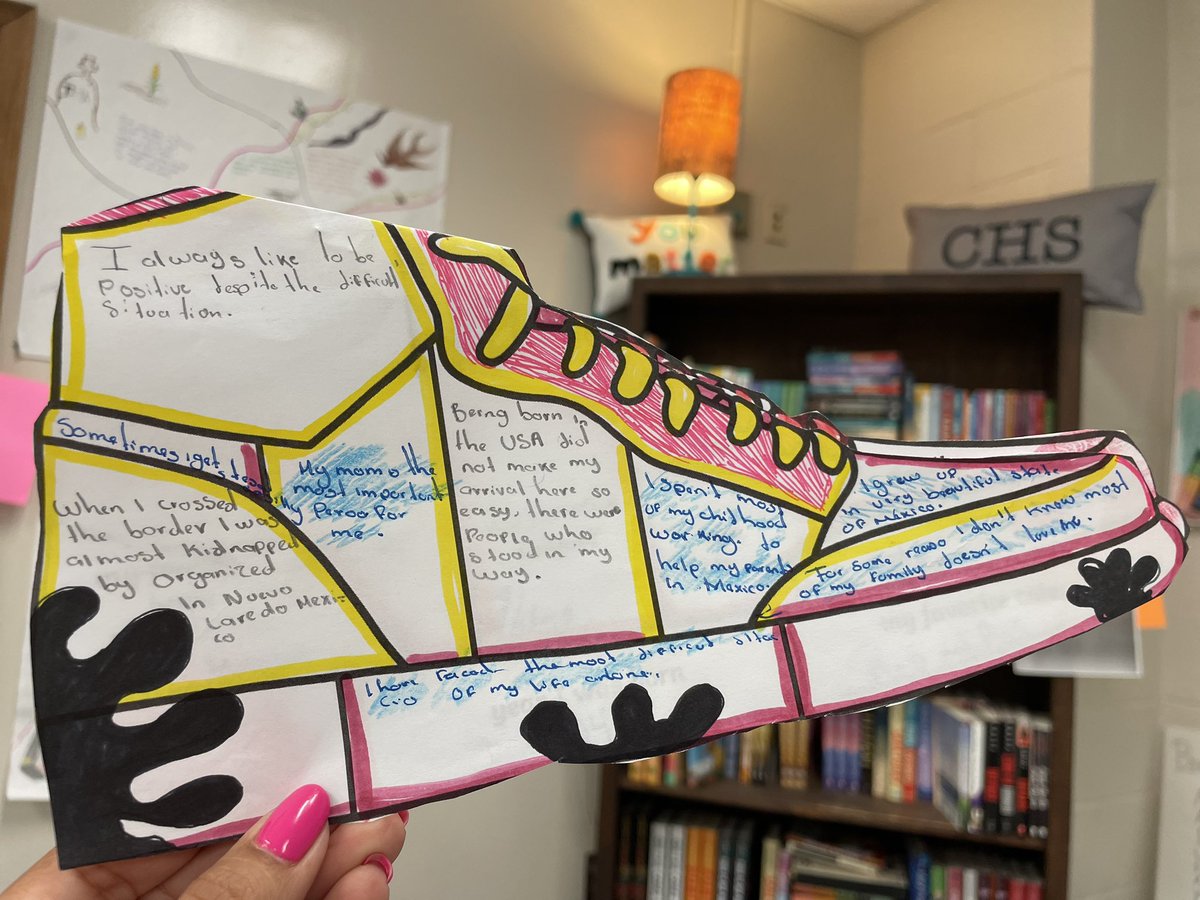 I always like to be
Positive despite the difficult
Situation.
Sometimes i get
My mom is the
most important
Person for
me.
When I crossed
the border I was
almost kidnapped
by Organized
In Nuevo
Laredo Mexi-
co
Being born in
the USA did
not make my
arrival here so
easy, there were
People who
stood in my
way.
I spent most
of my childhood
working. to
help my parents
in Mexico.
I grew up
in very beautiful state
OF MÉXICO.
For some reaso I don't know most
of my family doesn't love me.
I have faced the most difficult
OF my life alone..
you
CHS